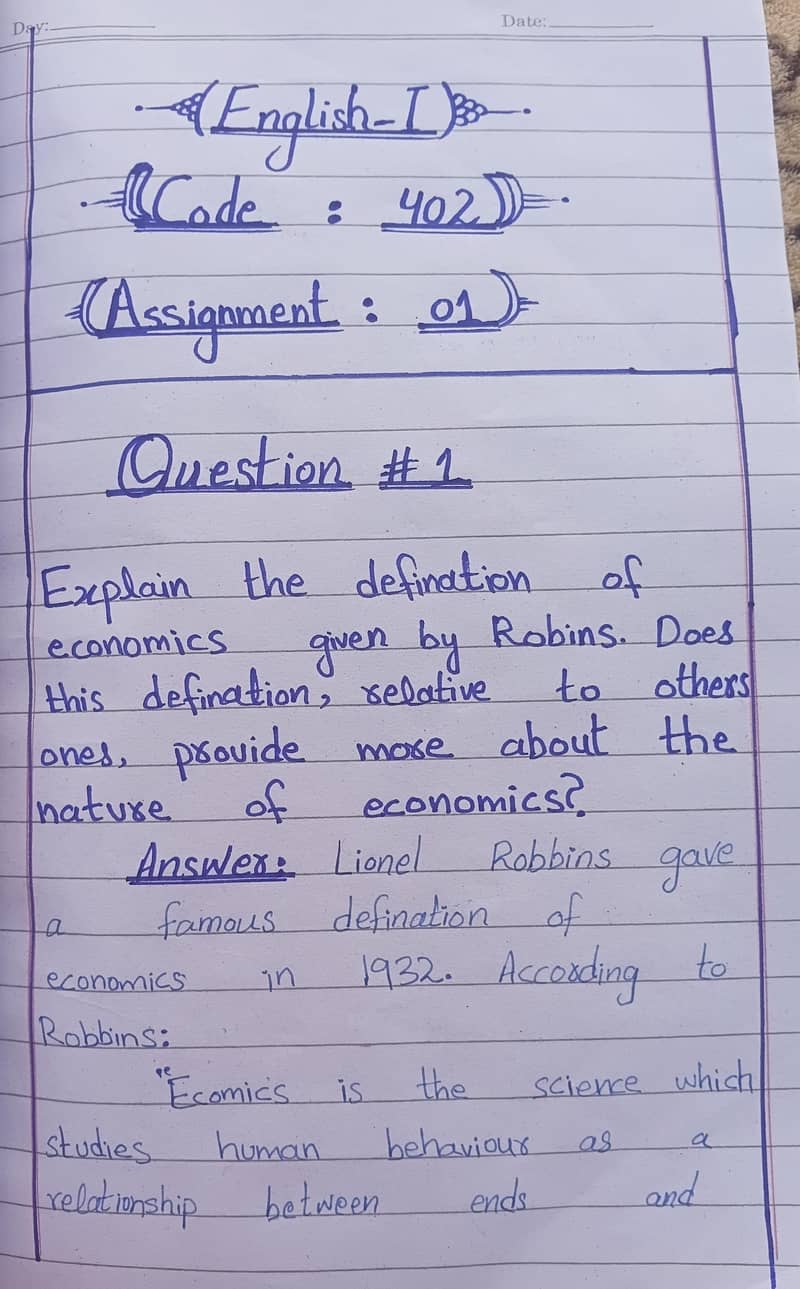 Day:
Date:
English-I
Code : 402
Assignment : 01
Question #1
Explain the defination of
economics given by Robins. Does
this defination, relative to others
ones, provide more about the
nature of economics?
Answer: Lionel Robbins gave
a famous defination of
economics in 1932. According to
Robbins:
"Ecomics is the scienre which
studies human behaviour as a
relationship between ends and